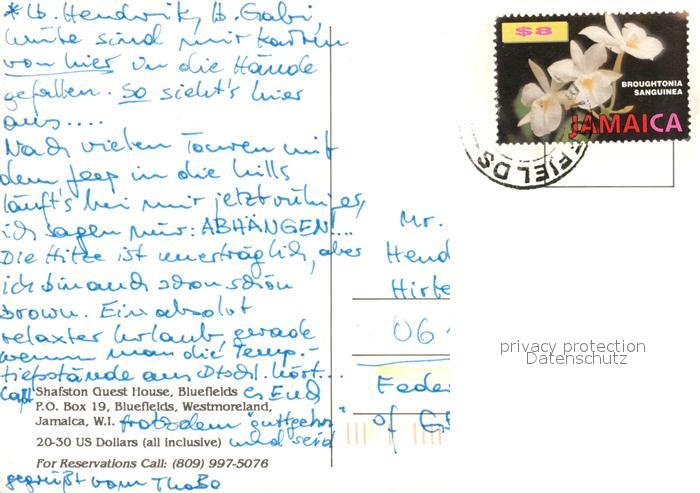 *Lb. Hendrik, lb. Gabi,
heute sind mir Karten
von hier in die Hände
gefallen. So sieht's hier
aus....
Nach vielen Touren mit
dem Jeep in die hills
läuft's bei mir jetzt ruhiger,
ich sagen nur: ABHÄNGEN!...
Die Hitze ist unerträglich, aber
ich bin auch schon schön
brown. Ein absolut
relaxter Urlaub gerade
wenn man die Temp.-
tiefstände aus Dtschl. hört...
Laßt es Euch
trotzdem "gutgehn"
und seid
gegrüßt vom ThoBo
Shafston Guest House, Bluefields
P.O. Box 19, Bluefields, Westmoreland,
Jamaica, W.I.
20-30 US Dollars (all inclusive)
For Reservations Call: (809) 997-5076
$8
BROUGHTONIA
SANGUINEA
JAMAICA
EFIELDS
Mr.
Hend
Hirte
06
Feder
of GE
privacy protection
Datenschutz